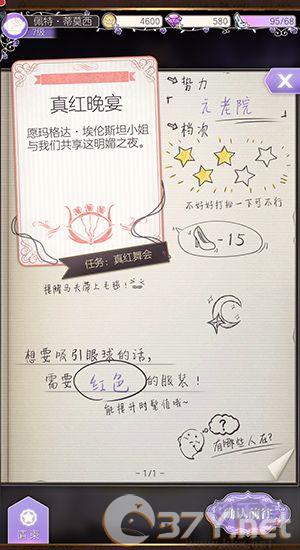 佩特·蒂莫西
7级
4600
580
95/68
真红晚宴
愿玛格达·埃伦斯坦小姐
与我们共享这明媚之夜。
任务：真红舞会
势力
元老院
档次
不好好打扮一下可不行
-15
提醒马夫带上毛毯！
想要吸引眼球的话，
需要 红色 的服装！
能提升时髦值哦~
?
有哪些人在?
- 1/1 -
确认前往
37Y.net